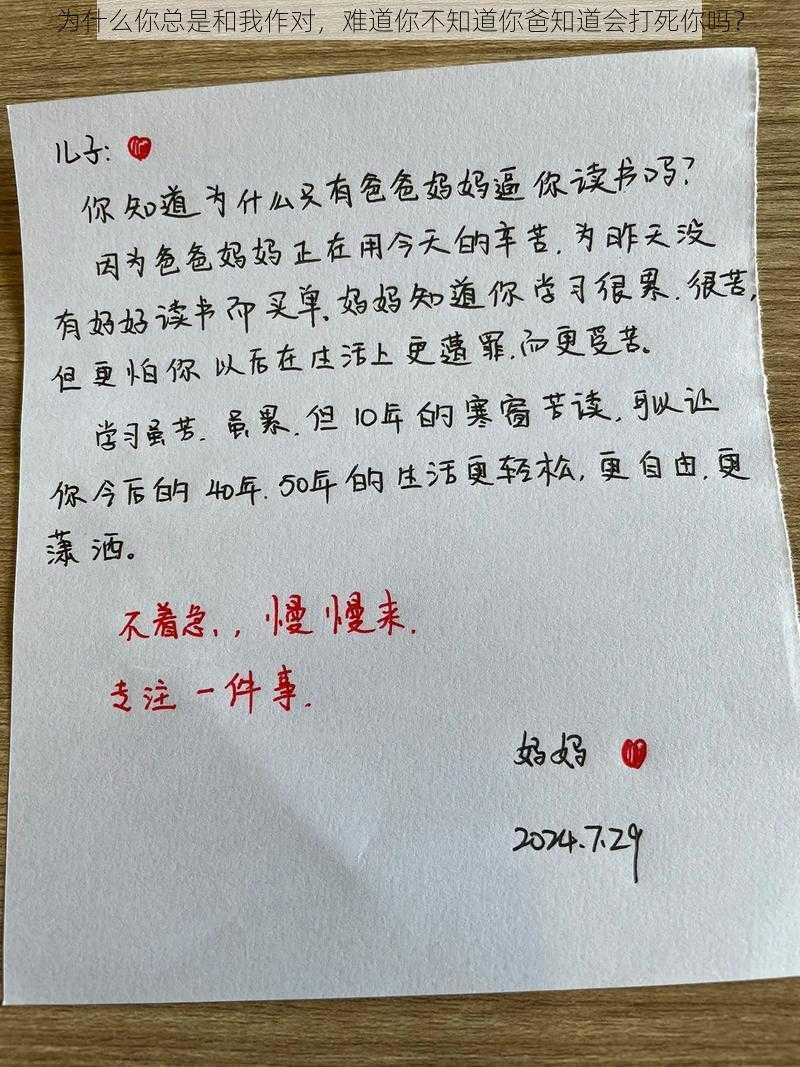 为什么你总是和我作对，难道你不知道你爸知道会打死你吗？
儿子:
你知道为什么只有爸爸妈妈逼你读书吗?
因为爸爸妈妈正在用今天的辛苦,为昨天没
有好好读书而买单,妈妈知道你学习很累.很苦,
但更怕你以后在生活上更遭罪,而更受苦。
学习虽苦.虽累,但10年的寒窗苦读,可以让
你今后的40年.50年的生活更轻松,更自由,更
潇洒。
不着急,,慢慢来.
专注一件事.
妈妈
2024.7.29